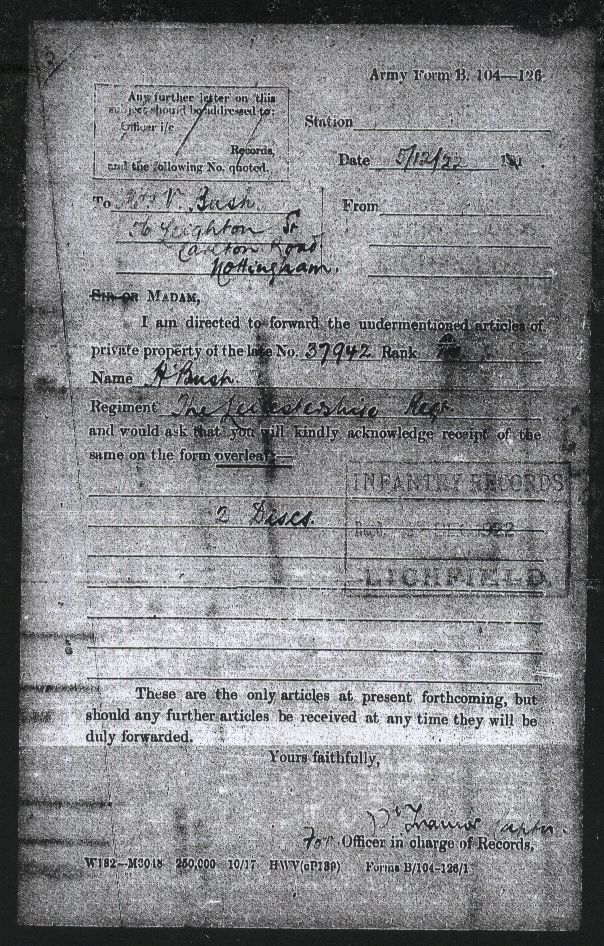 Army Form B. 104—126
Any further letter on this
subject should be addressed to:
Officer i/c
Records,
and the following No. quoted.
Station
Date 5/12/22 191
To Mrs V. Bush.
56 Leighton St
Carlton Road
Nottingham.
From
Sir or Madam,
I am directed to forward the undermentioned articles of
private property of the late No. 37942 Rank
Name H Bush.
Regiment The Leicestershire Regt
and would ask that you will kindly acknowledge receipt of the
same on the form overleaf:—
INFANTRY RECORDS
1922
LICHFIELD.
2 Discs.
These are the only articles at present forthcoming, but
should any further articles be received at any time they will be
duly forwarded.
Yours faithfully,
Captn.
For Officer in charge of Records.
W182—M3048 250,000 10/17 HWV(P189) Forms B/104-126/1